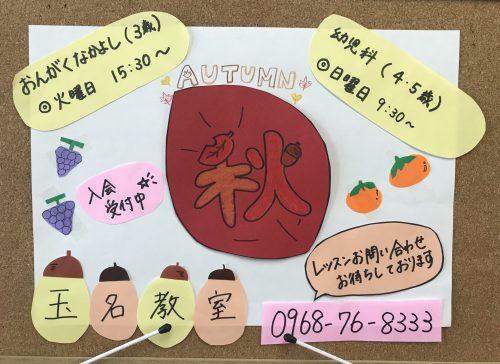 おんがくなかよし(3歳)
◎火曜日 15:30〜
AUTUMN
幼児科(4.5歳)
◎日曜日 9:30〜
秋
入会
受付中
レッスンお問い合わせ
お待ちしております
玉名教室
0968-76-8333